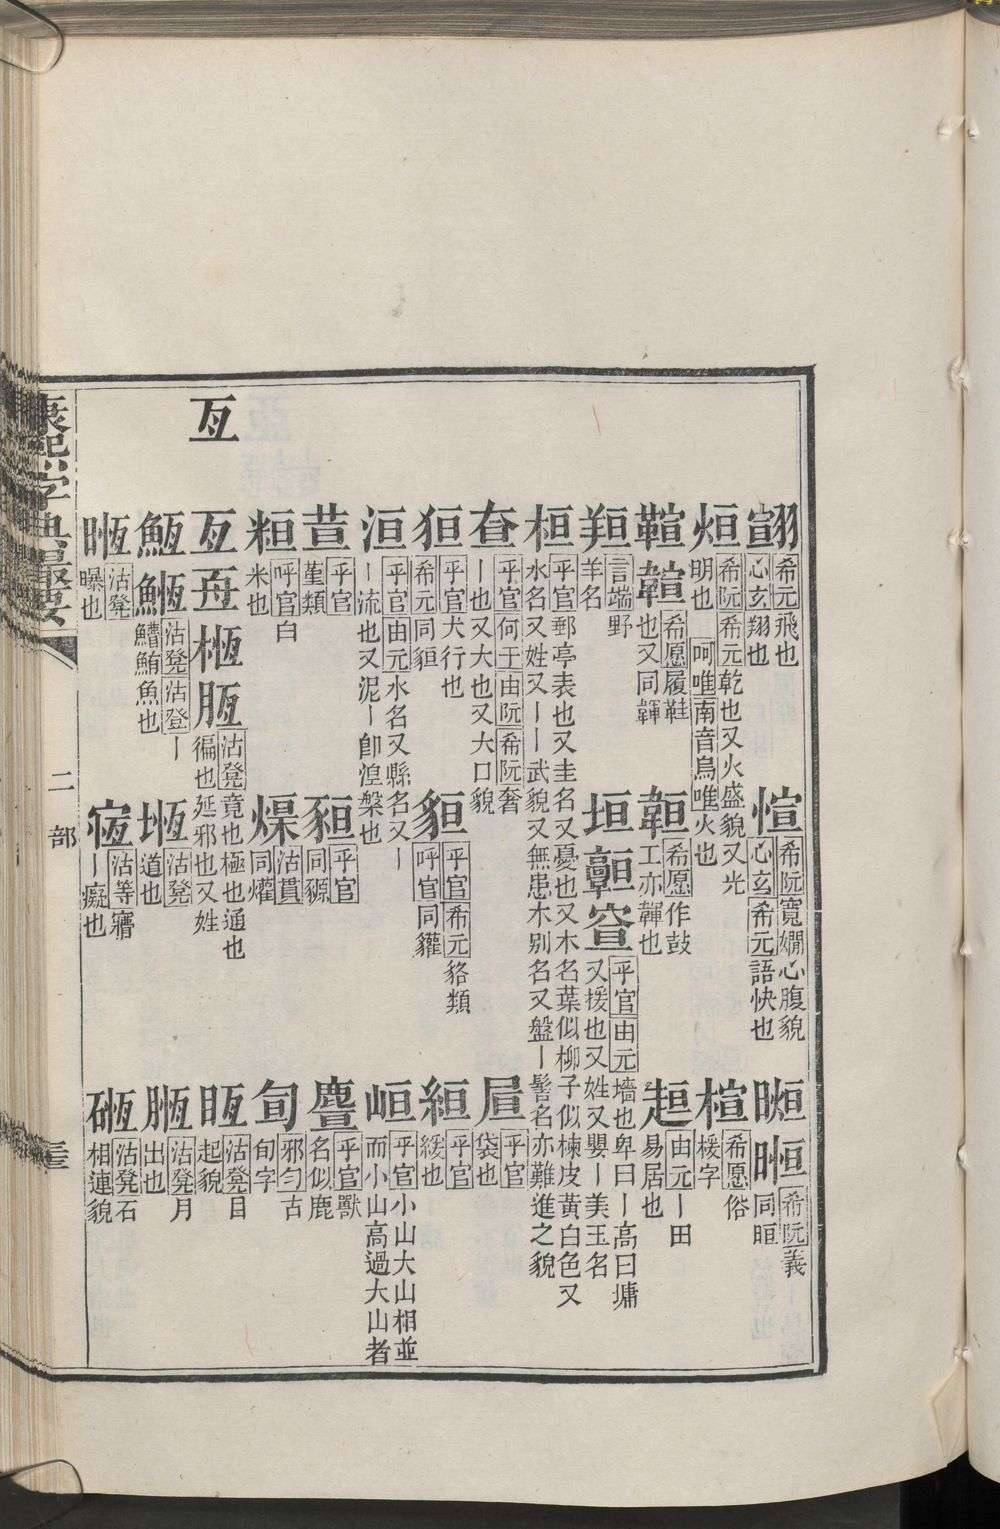 翧
希元飛也
心玄翔也
愃
希阮寬嫺心腹貌
心玄希元語快也
㫜
晅
希阮義
同暄
烜
希阮希元乾也又火盛貌又光
明也
呵唯南音烏唯火也
楦
希愿俗
楥字
鞙
韗
希愿履鞋
也又同韗
䩰
希愿作鼓
工亦韗也
䞩
由元丨田
易居也
羱
言端野
羊名
垣
𩫨
𥥇
乎官由元墻也卑曰丨高曰墉
又援也又姓又嬰丨美玉名
桓
乎官郵亭表也又圭名又憂也又木名葉似柳子似楝皮黃白色又
水名又姓又丨丨武貌又無患木别名又盤丨髻名亦難進之貌
奆
乎官何于由阮希阮奢
丨也又大也又大口貌
㞡
乎官
袋也
狟
乎官犬行也
希元同貆
貆
乎官希元貉類
呼官同貛
絙
乎官
緩也
洹
乎官由元水名又縣名又丨
丨流也又泥丨卽湼槃也
峘
乎官小山大山相並
而小山高過大山者
荁
乎官
堇類
豲
乎官
同豲
䴟
乎官獸
名似鹿
䊐
呼官白
米也
爟
沽貫
同爟
㫬
邪勻古
旬字
亙
亙
𠄢
㮓
𦛟
沽凳竟也極也通也
徧也延邪也又姓
𥆯
沽凳目
起貌
䱍
䱭
沽凳沽登丨
䲛鮪魚也
堩
沽凳
道也
𦛟
沽凳月
出也
㫯
沽凳
曝也
㾘
沽等㾪
丨癡也
䃄
沽凳石
相連貌
康熙字典撮要
二部